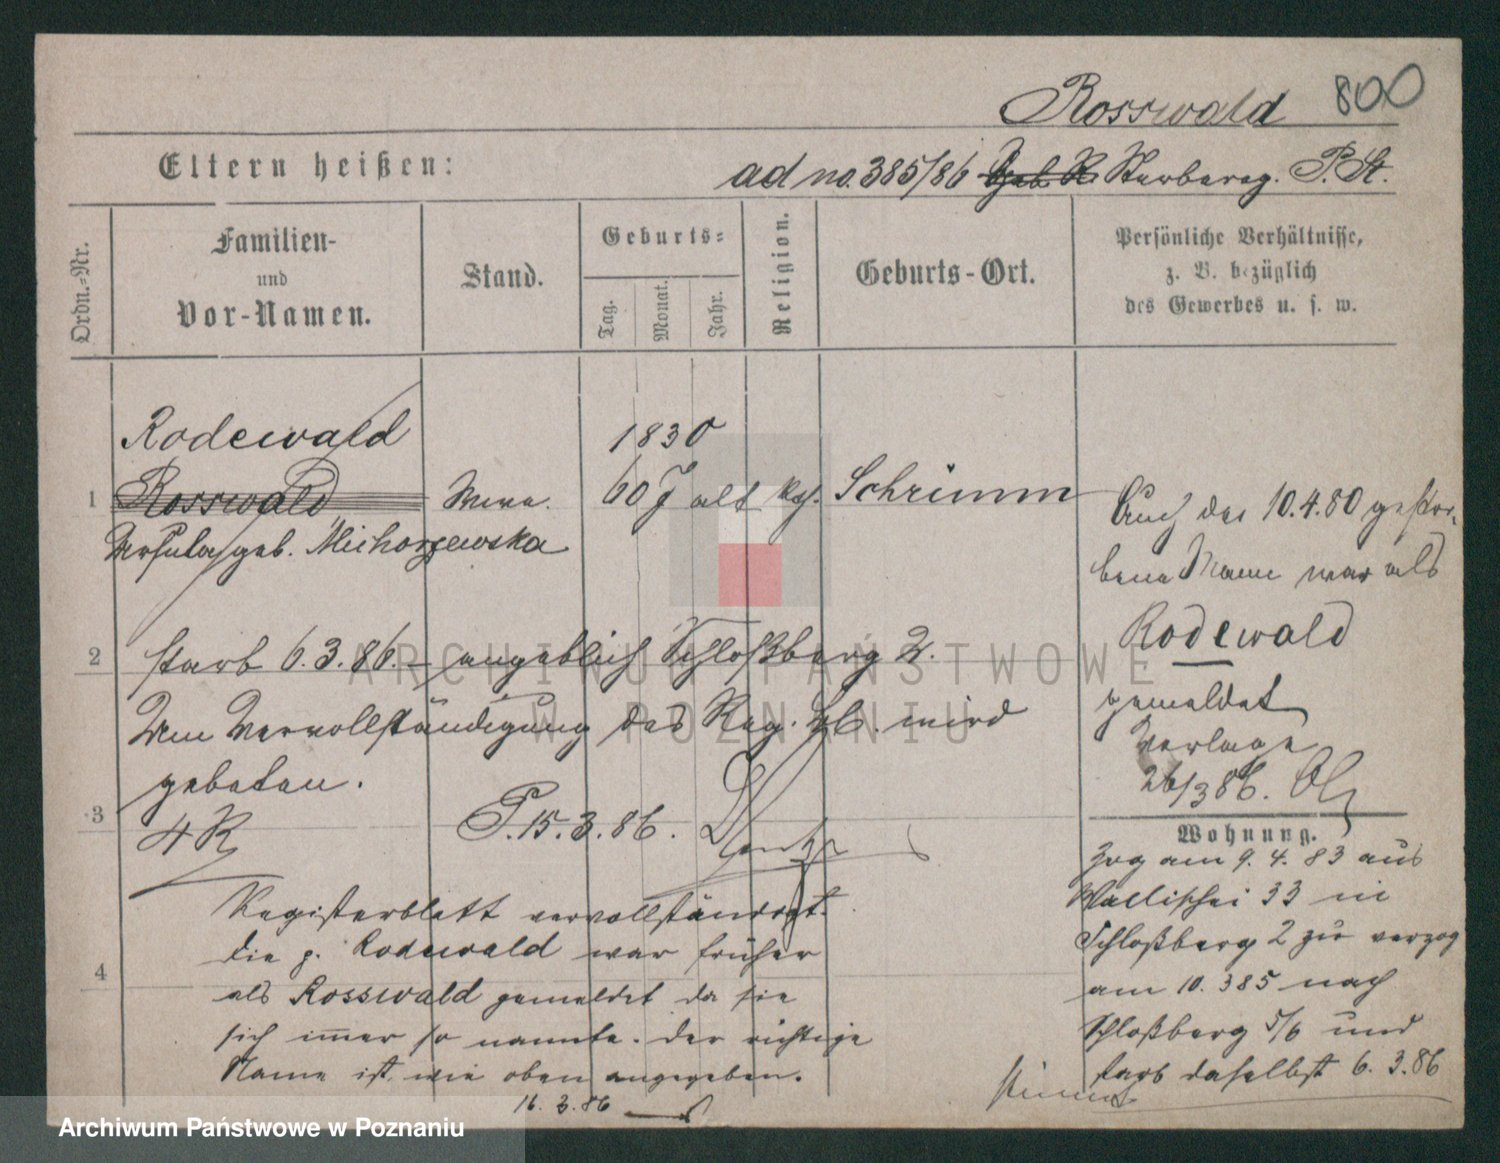 Rosswald 800
Eltern heißen:
ad no. 385/86 Geb. R. Sterbereg. P. St.
Ordn.-Nr.
Familien-
und
Vor-Namen.
Stand.
Geburts-
Tag.
Monat.
Jahr.
Religion.
Geburts-Ort.
Persönliche Verhältnisse,
z. B. bezüglich
des Gewerbes u. s. w.
Rodewald
1830
1 Rosswald Wwe. 60 J alt kath. Schrimm
Ursula geb. Michorzewska
Auch der 10.4.80 gestor-
bene Mann war als
Rodewald
gemeldet
26/3 86.
2 starb 6.3.86. – angeblich Schloßberg 2.
Um Vervollständigung des Reg. Bl. wird
gebeten.
3 4 R P. 15.3.86.
Registerblatt vervollständigt.
die p. Rodewald war früher
4 als Rosswald gemeldet da sie
sich immer so nannte. der richtige
Name ist wie oben angegeben.
16.3.86
Wohnung.
Zog am 9.4.83 aus
Wallischei 33 in
Schloßberg 2 zu verzog
am 10.3 85 nach
Schloßberg 5/6 und
starb daselbst 6.3.86
stimmt
ARCHIWUM PAŃSTWOWE
W POZNANIU
Archiwum Państwowe w Poznaniu